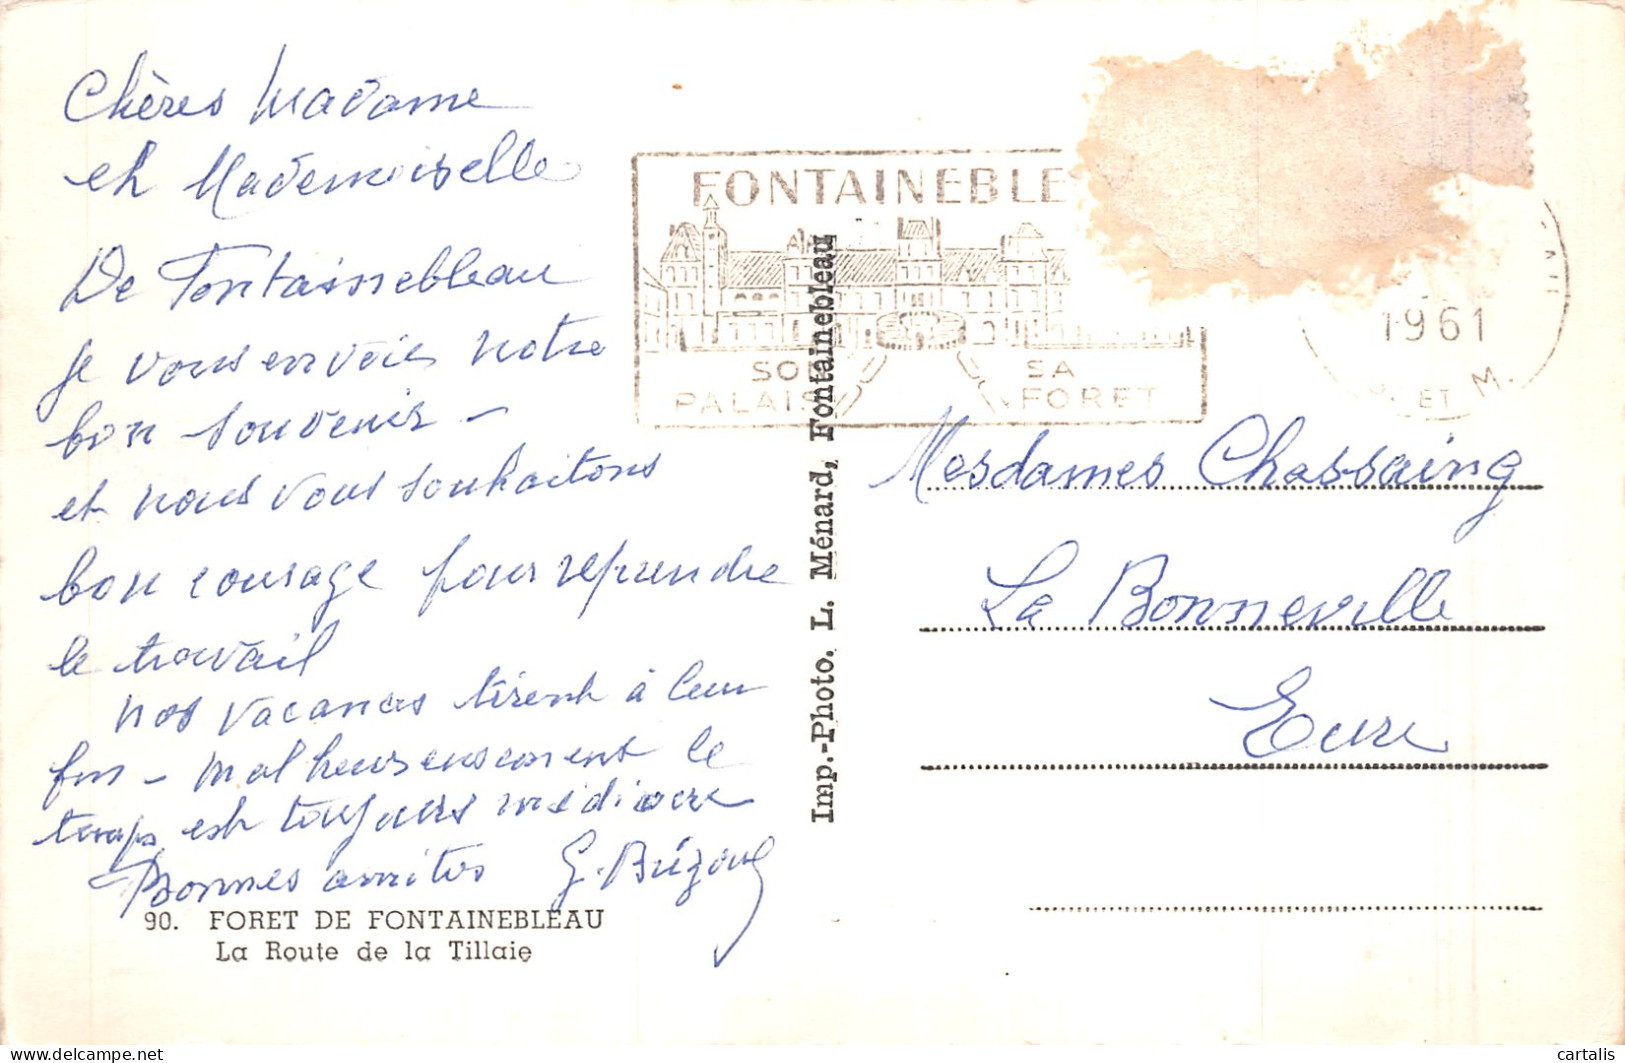 Chères Madame
et Mademoiselle
De Fontainebleau
je vous envoie notre
bon souvenir -
et nous vous souhaitons
bon courage pour reprendre
le travail
nos vacances tirent à leur
fin - malheureusement le
temps est toujours médiocre
Bonnes amitiés G.
90. FORET DE FONTAINEBLEAU
La Route de la Tillaie
Imp.-Photo. L. Ménard, Fontainebleau
FONTAINEBLE
SON SA
PALAIS FORET
1961
ET M.
Mesdames Chassaing
La Bonneville
Eure
delcampe.net
cartalis